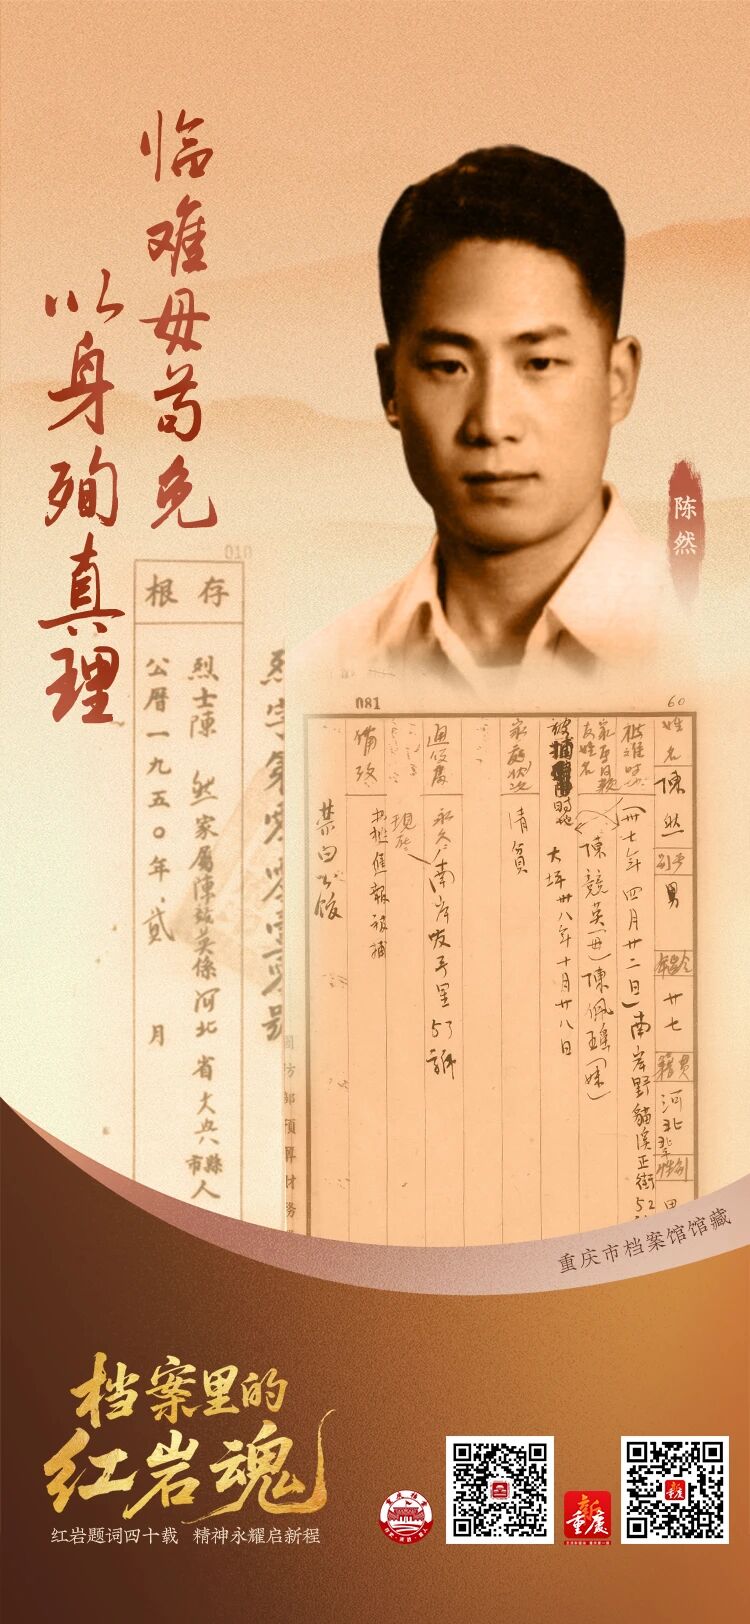 临难毋苟免
以身殉真理
陈然
010
存根
烈士陳 然家屬陳競英係河北省大兴市縣人
公曆一九五〇年貳 月
國防部預算財務
081
60
姓名
陳然
别号
男
年龄
廿七
籍贯
河北
性别
男
被难时地
(卅七年四月廿二日)南岸野貓溪正街52
陳競英(母)陳佩瑤(妹)
被捕
大坪卅八年十月廿八日
家庭状况
清貧
通信處
永久
南岸
53號
現在
備攷
挺進報被捕
重庆市档案馆馆藏
档案里的
红岩魂
红岩题词四十载 精神永耀启新程
新重庆